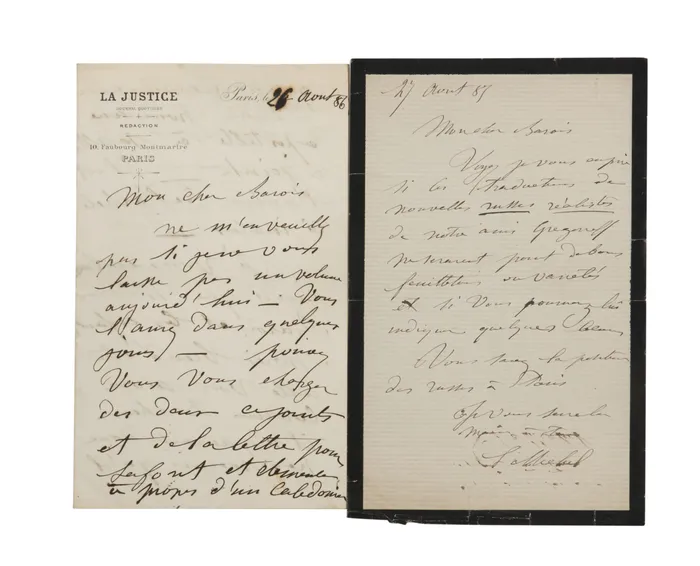 LA JUSTICE
JOURNAL QUOTIDIEN
RÉDACTION
10, Faubourg Montmartre
PARIS
Paris, le 26 Aout 86
Mon cher Barois
ne m'en veuillez
pas si je ne vous
laisse pas un volume
aujourd'hui — Vous
l'aurez dans quelques
jours — pouvez
Vous Vous charger
des deux ci joints
et de la lettre pour
Lafont et clemenceau
à propos d'un Caledonien
27 Aout 87
Mon cher Barois
Voyez je vous en prie
si les traductions de
nouvelles russes réalistes
de notre ami
ne seraient point de bons
feuilletons ou variétés
et si Vous pourriez lui
indiquer quelques
Vous savez la position
des russes à Paris
Je vous serre la
main
L Michel